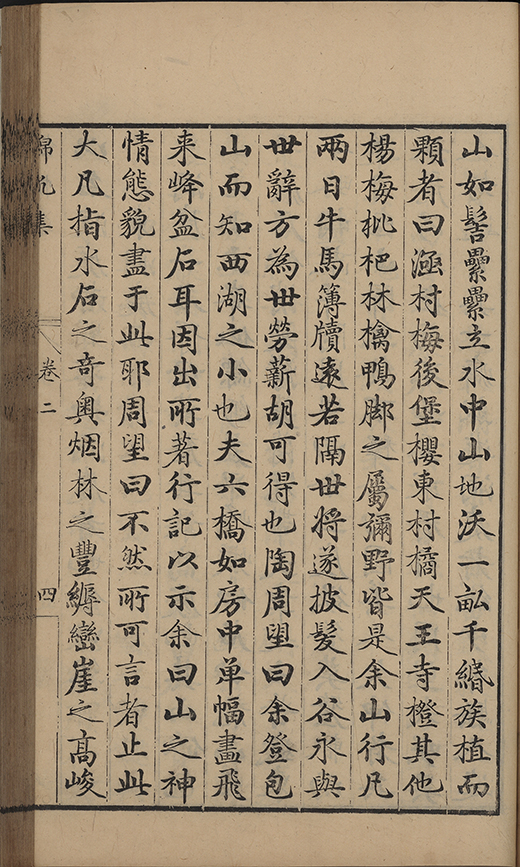 山如髻纍纍立水中山地沃一畝千緡族植而
顆者曰涵村梅後堡櫻東村橘天王寺橙其他
楊梅枇杷林檎鴨脚之屬彌野皆是余山行凡
兩日牛馬簿牘遠若隔世將遂披髮入谷永與
世辭方為世勞薪胡可得也陶周望曰余登包
山而知西湖之小也夫六橋如房中单幅畫飛
来峰盆石耳因出所著行記以示余曰山之神
情態貌盡于此耶周望曰不然所可言者止此
大凡指水石之奇奥烟林之豐縟巒崖之髙峻
錦帆集 卷二 四